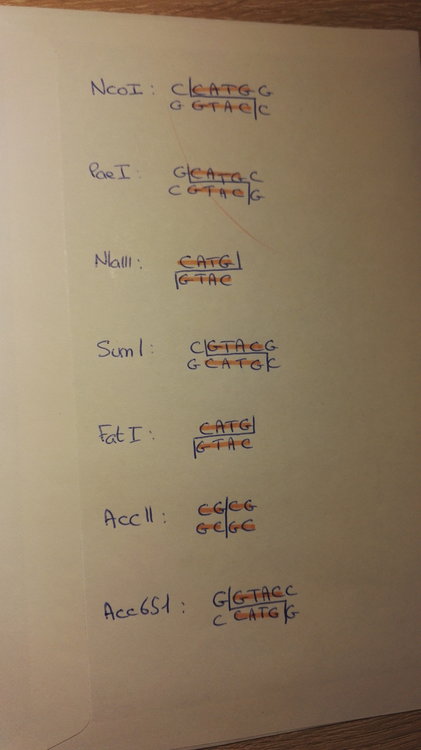 NcoI : C|CATG G
G GTAC|C
PaeI : G|CATG C
C GTAC|G
NlaIII : CATG|
|GTAC
SumI : C|GTAC G
G CATG|C
FatI : CATG|
|GTAC
AccII : CG|CG
GC|GC
Acc65I : G|GTAC C
C CATG|G